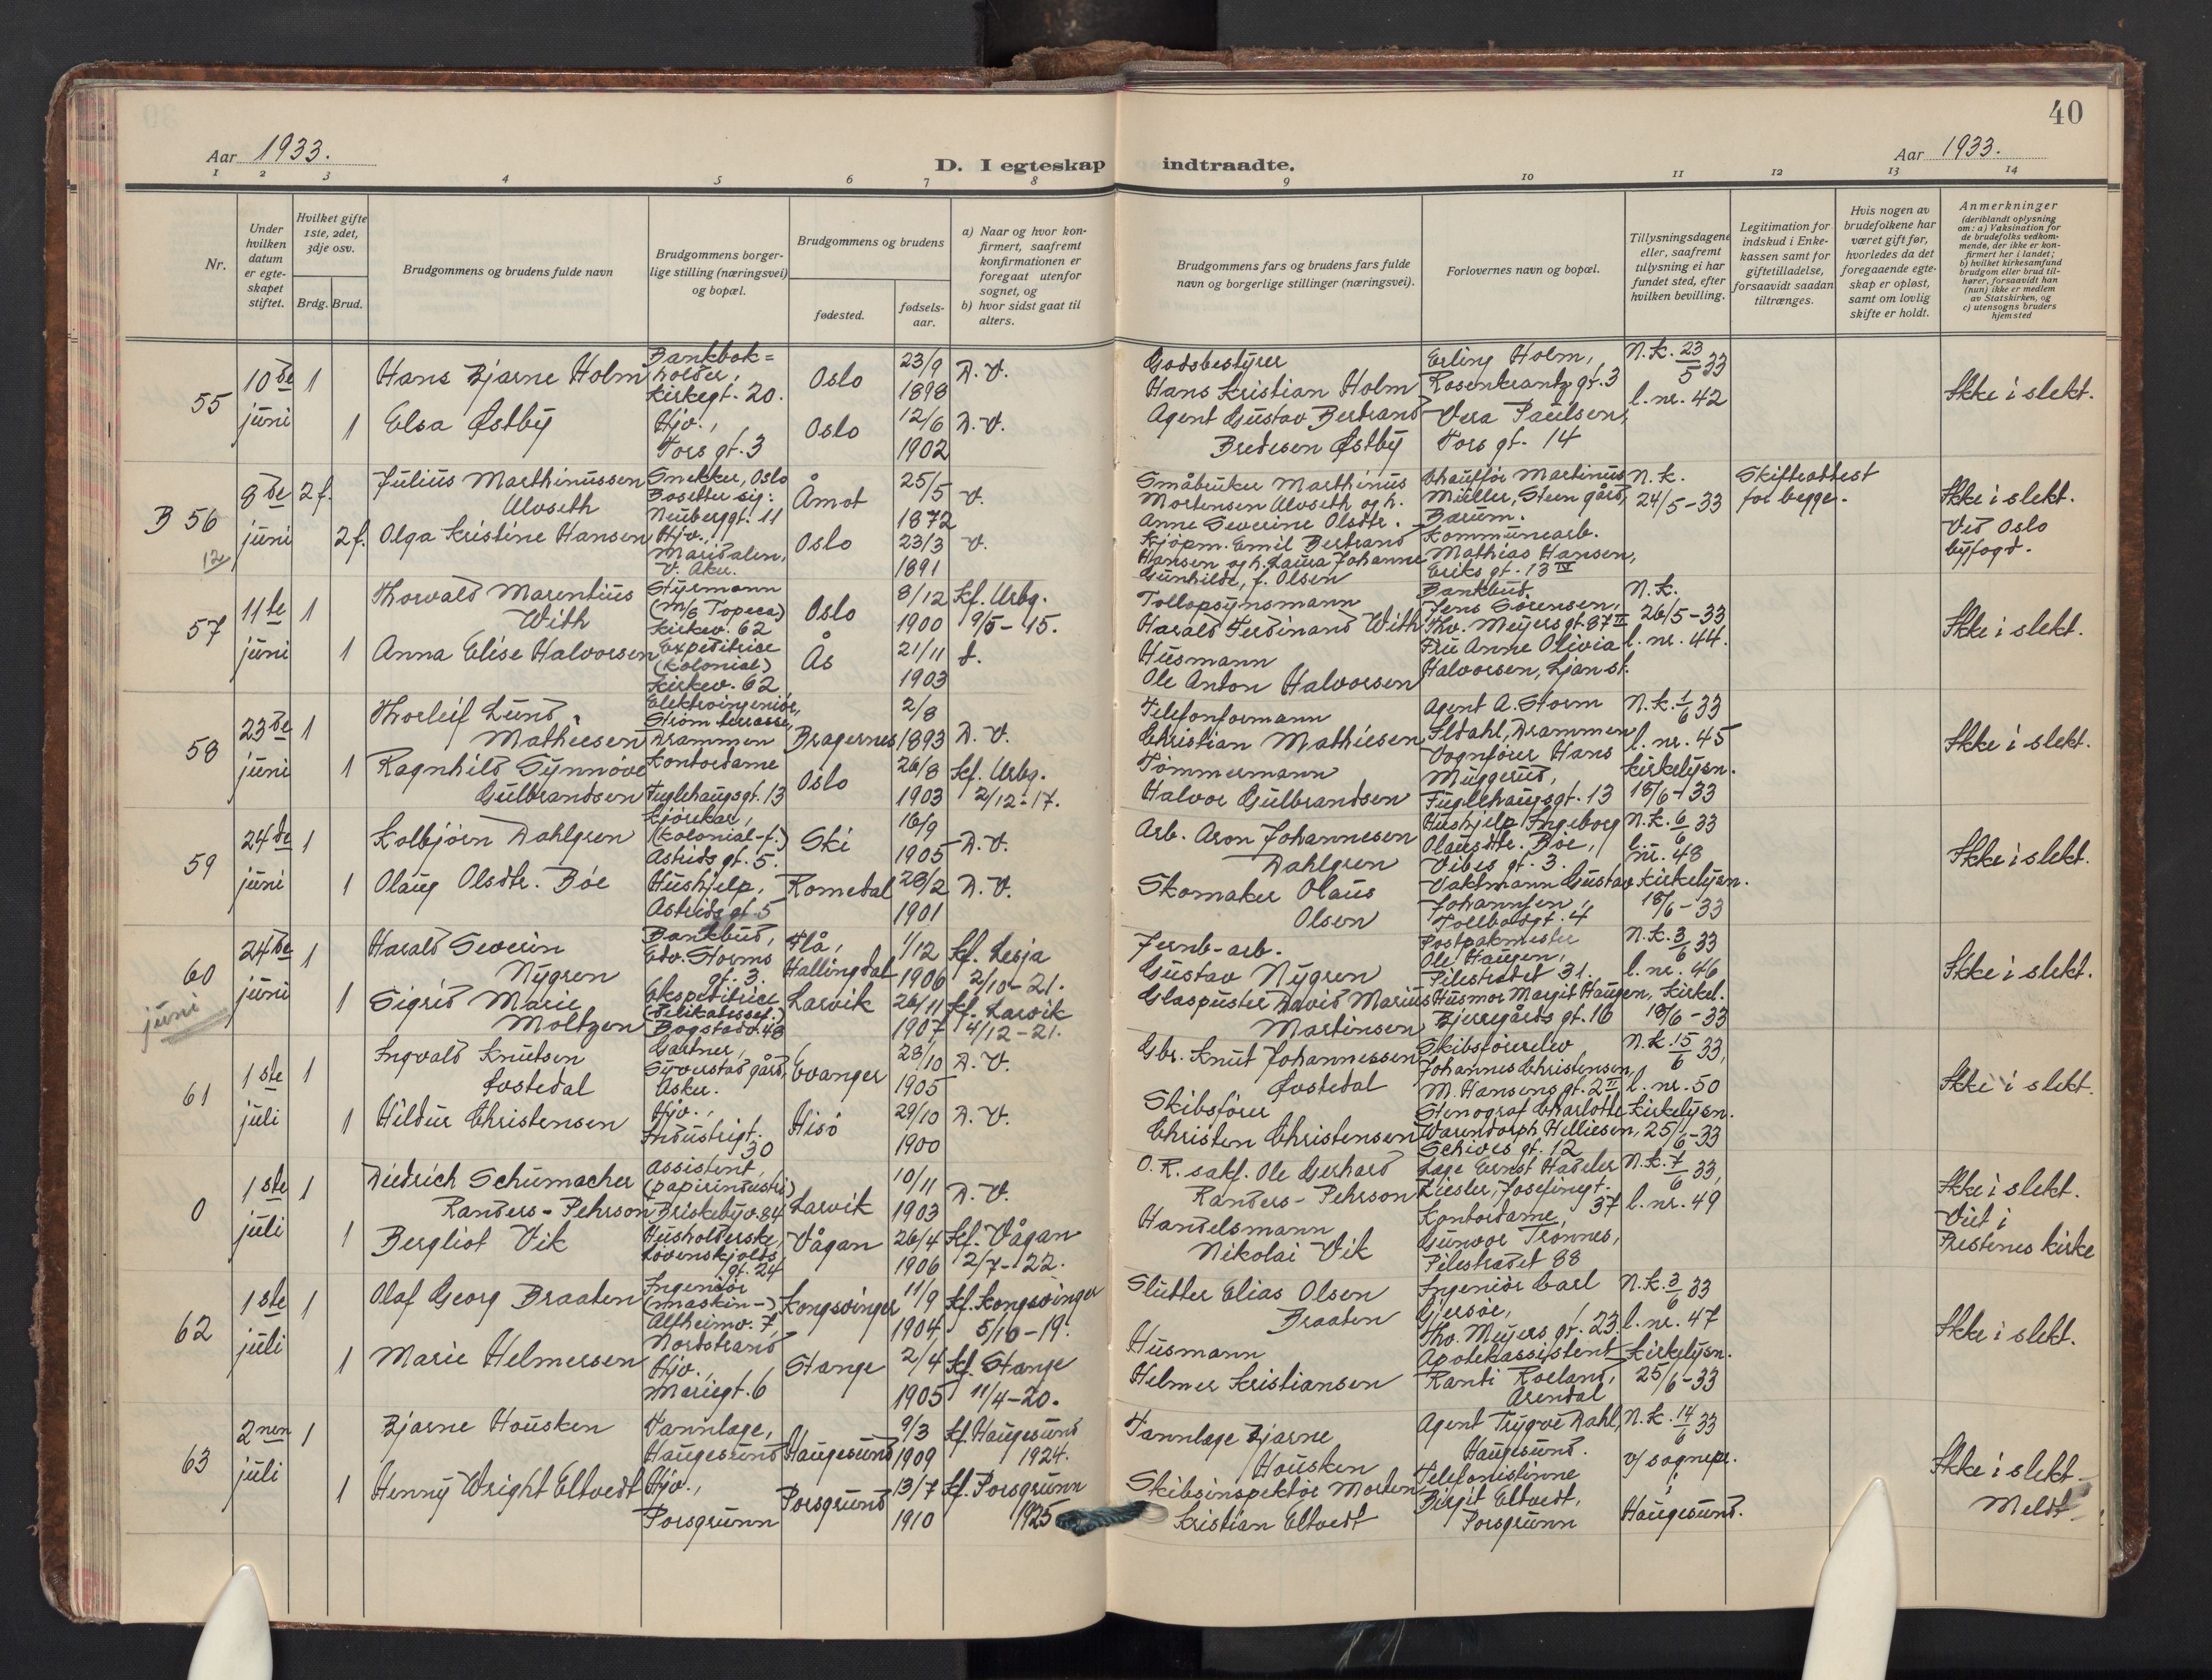 40
Aar 1933.
D. I egteskap indtraadte.
Aar 1933.
1 2 3 4 5 6 7 8 9 10 11 12 13 14
Nr.
Under hvilken datum er egteskapet stiftet.
Hvilket gifte 1ste, 2det, 3dje osv.
Brdg. Brud.
Brudgommens og brudens fulde navn
Brudgommens borgerlige stilling (næringsvei) og bopæl.
Brudgommens og brudens
fødested.
fødselsaar.
a) Naar og hvor konfirmert, saafremt konfirmationen er foregaat utenfor sognet, og
b) hvor sidst gaat til alters.
Brudgommens fars og brudens fars fulde navn og borgerlige stillinger (næringsvei).
Forlovernes navn og bopæl.
Tillysningsdagene eller, saafremt tillysning ei har fundet sted, efter hvilken bevilling.
Legitimation for indskud i Enkekassen samt for giftetilladelse, forsaavidt saadan tiltrænges.
Hvis nogen av brudefolkene har været gift før, hvorledes da det foregaaende egteskap er opløst, samt om lovlig skifte er holdt.
Anmerkninger (deriblandt oplysning om: a) Vaksination for de brudefolks vedkommende, der ikke er konfirmert her i landet; b) hvilket kirkesamfund brudgom eller brud tilhører, forsaavidt han (hun) ikke er medlem av Statskirken, og c) utensogns bruders hjemsted
55 10de juni 1 Hans Bjarne Holm Bankbokholder, Kirkegt. 20. Oslo 23/9 1898 D. V. Godsbestyrer Hans Kristian Holm Erling Holm, Rosenkrantzgt. 3 N.k. 23/5 33 l. nr. 42 Ikke i slekt.
1 Elsa Østby Hjv., Tors gt. 3 Oslo 12/6 1902 D. V. Agent Gustav Bertrand Bredesen Østby Vera Paulsen, Tors gt. 14
B 56 12 8de juni 2 f. Julius Marthinussen Alvseth Snekker, Oslo Bosetter sig: Neuberggt. 11 Åmot 25/5 1872 V. Småbruker Marthinus Mortensen Alvseth og h. Anne Severine Olsdtr. Chauffør Martinus Müller, Steen gård, Bærum. N.k. 24/5-33 Skifteattest for begge. Ikke i slekt. Ved Oslo byfogd.
2 f. Olga Kristine Hansen Hjv., Maridalen, V. Aker. Oslo 23/3 1891 V. Kjøpm. Emil Bertrand Hansen og h. Laura Johanne Gunhilde, f. Olsen Kommunearb. Mathias Hansen, Eriks gt. 13 IV
57 11te juni 1 Thorvald Marentius With Styrmann (m/s Topeca) Kirkev. 62 Oslo 8/12 1900 Kf. Urbg. 9/5-15. Tollopsynsmann Harald Ferdinand With Bankbud. Jens Sørensen, Thv. Meyersgt. 87 II N.k. 26/5-33 l. nr. 44. Ikke i slekt.
1 Anna Elise Halvorsen Expeditrice (kolonial) Kirkev. 62 Ås 21/11 1903 d. Husmann Ole Anton Halvorsen Fru Anne Olivia Halvorsen, Ljan st.
58 23de juni 1 Thorleif Lund Mathiesen Elektroingeniør, Strøm terrasse, Drammen Bragernes 2/8 1893 D. V. Telefonformann Christian Mathiesen Agent A. Storm Ildahl, Drammen N.k. 1/6 33 l. nr. 45 Ikke i slekt.
1 Ragnhild Synnøve Gulbrandsen Kontordame Fuglehaugsgt. 13 Oslo 26/8 1903 Kf. Urbg. 2/12-17. Tømmermann Halvor Gulbrandsen Vognfører Hans Muggerud, Fuglehaugsgt. 13 Kirkelysn. 18/6-33
59 24de juni 1 Kolbjørn Dahlgren Kjørekar, (kolonial-f.) Astrids gt. 5. Ski 16/9 1905 D. V. Arb. Aron Johannesen Dahlgren Hushjelp Ingeborg Olausdtr. Bøe, Vibes gt. 3. N.k. 6/6 33 l. nr. 48 Ikke i slekt.
1 Olaug Olsdtr. Bøe Hushjelp, Astrids gt. 5 Romedal 28/2 1901 D. V. Skomaker Olaus Olsen Vaktmann Gustav Johannsen, Tollbodgt. 4 Kirkelysn. 18/6-33
60 juni 24de juni 1 Harald Severin Nygren Bankbud, Edv. Storms gt. 3. Flå, Hallingdal 1/12 1906 Kf. Lesja 2/10-21. Jernb-arb. Gustav Nygren Postpakmester Ole Haugen, Pilestredet 31. N.k. 3/6 33 l. nr. 46 Ikke i slekt.
1 Sigrid Marie Moltzen Ekspeditrice (delikatessef.) Bogstadv. 48 Larvik 26/11 1907 Kf. Larvik 4/12-21. Glaspuster David Marius Martinsen Husmor Margit Haugen, Bjerregårds gt. 16 Kirkel. 18/6-33
61 1ste juli 1 Ingvald Knutsen Fostedal Gartner, Syverstad gård, Asker. Evanger 28/10 1905 D. V. Gbr. Knut Johannessen Fostedal Skibsførerelev Johannes Christensen, M. Hansens gt. 2 II N.k. 15/6 33, l. nr. 50 Ikke i slekt.
1 Hildur Christensen Hjv., Industrigt. 30 Hisø 29/10 1900 D. V. Skibsfører Christen Christensen Stenograf Charlotte Warendorph Helliesen, Schives gt. 12 Kirkelysn. 25/6-33
0 1ste juli 1 Diedrich Schumacher Randers-Pehrson Assistent, (papirindustri) Briskebyv. 84 Larvik 10/11 1903 D. V. O.R. sakf. Ole Gerhard Randers-Pehrson Læge Ernst Hadeler Ziesler, Josefinegt. 37 N.k. 7/6 33, l. nr. 49 Ikke i slekt. Viet i Prestenes kirke
1 Bergliot Vik Husholderske, Løvenskjolds gt. 24 Vågan 26/4 1906 Kf. Vågan 2/7-22. Handelsmann Nikolai Vik Kontordame, Gunvor Trønnes, Pilestrædet 88
62 1ste juli 1 Olaf Georg Braaten Ingeniør (maskin-) Alfheimv. 7, Nordstrand Kongsvinger 11/9 1904. Kf. Kongsvinger 5/10-19. Slutter Elias Olsen Braaten Ingeniør Carl Gjersøe, Thv. Meyers gt. 23. N.k. 3/6 33 l. nr. 47 Ikke i slekt.
1 Marie Helmersen Hjv., Mariegt. 6 Stange 2/4 1905 Kf. Stange 11/4-20. Husmann Helmer Kristiansen Apotekassistent Randi Roeland, Arendal Kirkelysn. 25/6-33
63 2nen juli 1 Bjarne Housken Tannlæge, Haugesund Haugesund 9/3 1909 Kf. Haugesund 1924. Tannlæge Bjarne Housken Agent Trygve Dahl, Haugesund. N.k. 14/6 33 v/ sognepr. i Haugesund. Ikke i slekt. Meldt
1 Henny Wright Eltvedt Hjv., Porsgrunn Porsgrund 13/7 1910 Kf. Porsgrunn 1925 Skibsinspektør Morten Kristian Eltvedt Telefonistinne Birgit Eltvedt, Porsgrunn